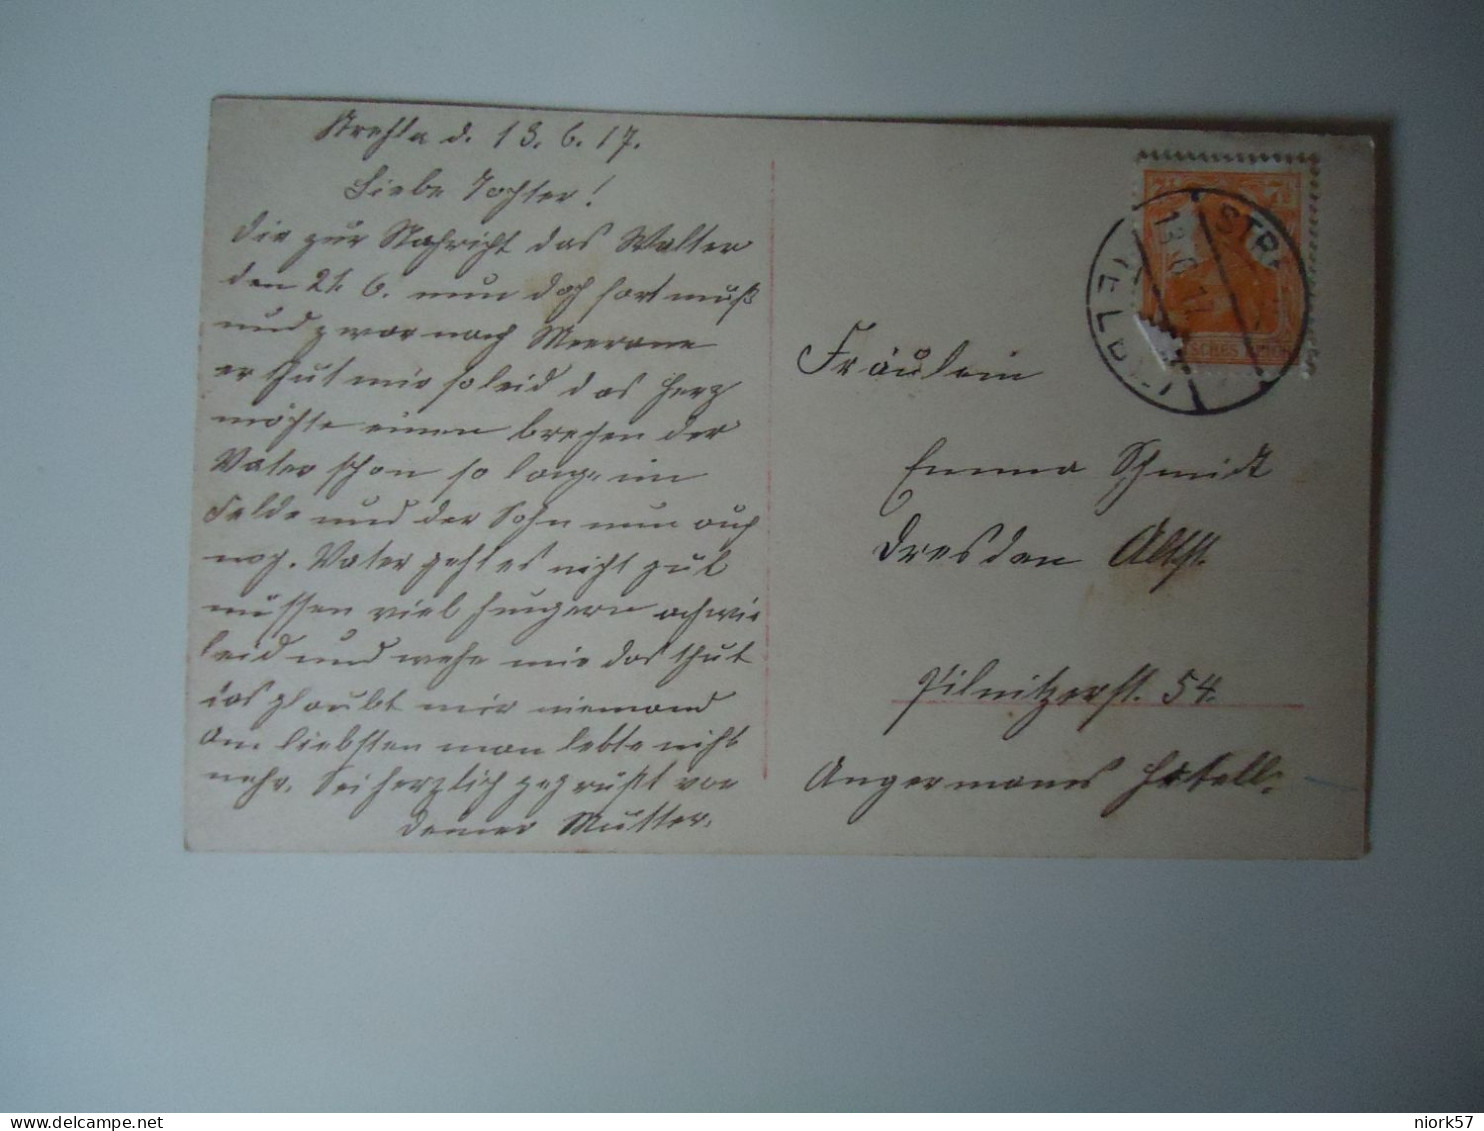 Strehla d. 13.6.17.
Liebe Tochter!
Die zur Nachricht das Walter
den 21. 6. nun doch fort muß
und zwar nach Meerane
er thut mir so leid das Herz
möchte einen brechen der
Vater schon so lange im
Felde und der Sohn nun auch
noch. Vater geht es nicht gut
müssen viel hungern ach wie
leid und wehe mir das thut
das glaubt mir niemand
am liebsten man lebte nicht
mehr. Sei herzlich gegrüßt von
Deiner Mutter.
7½ 7½
STREHLA
13.6.17
Fräulein
Emma Schmidt
Dresden Altst.
Pilnitzerst. 54.
Angermanns Hotell.
niork57